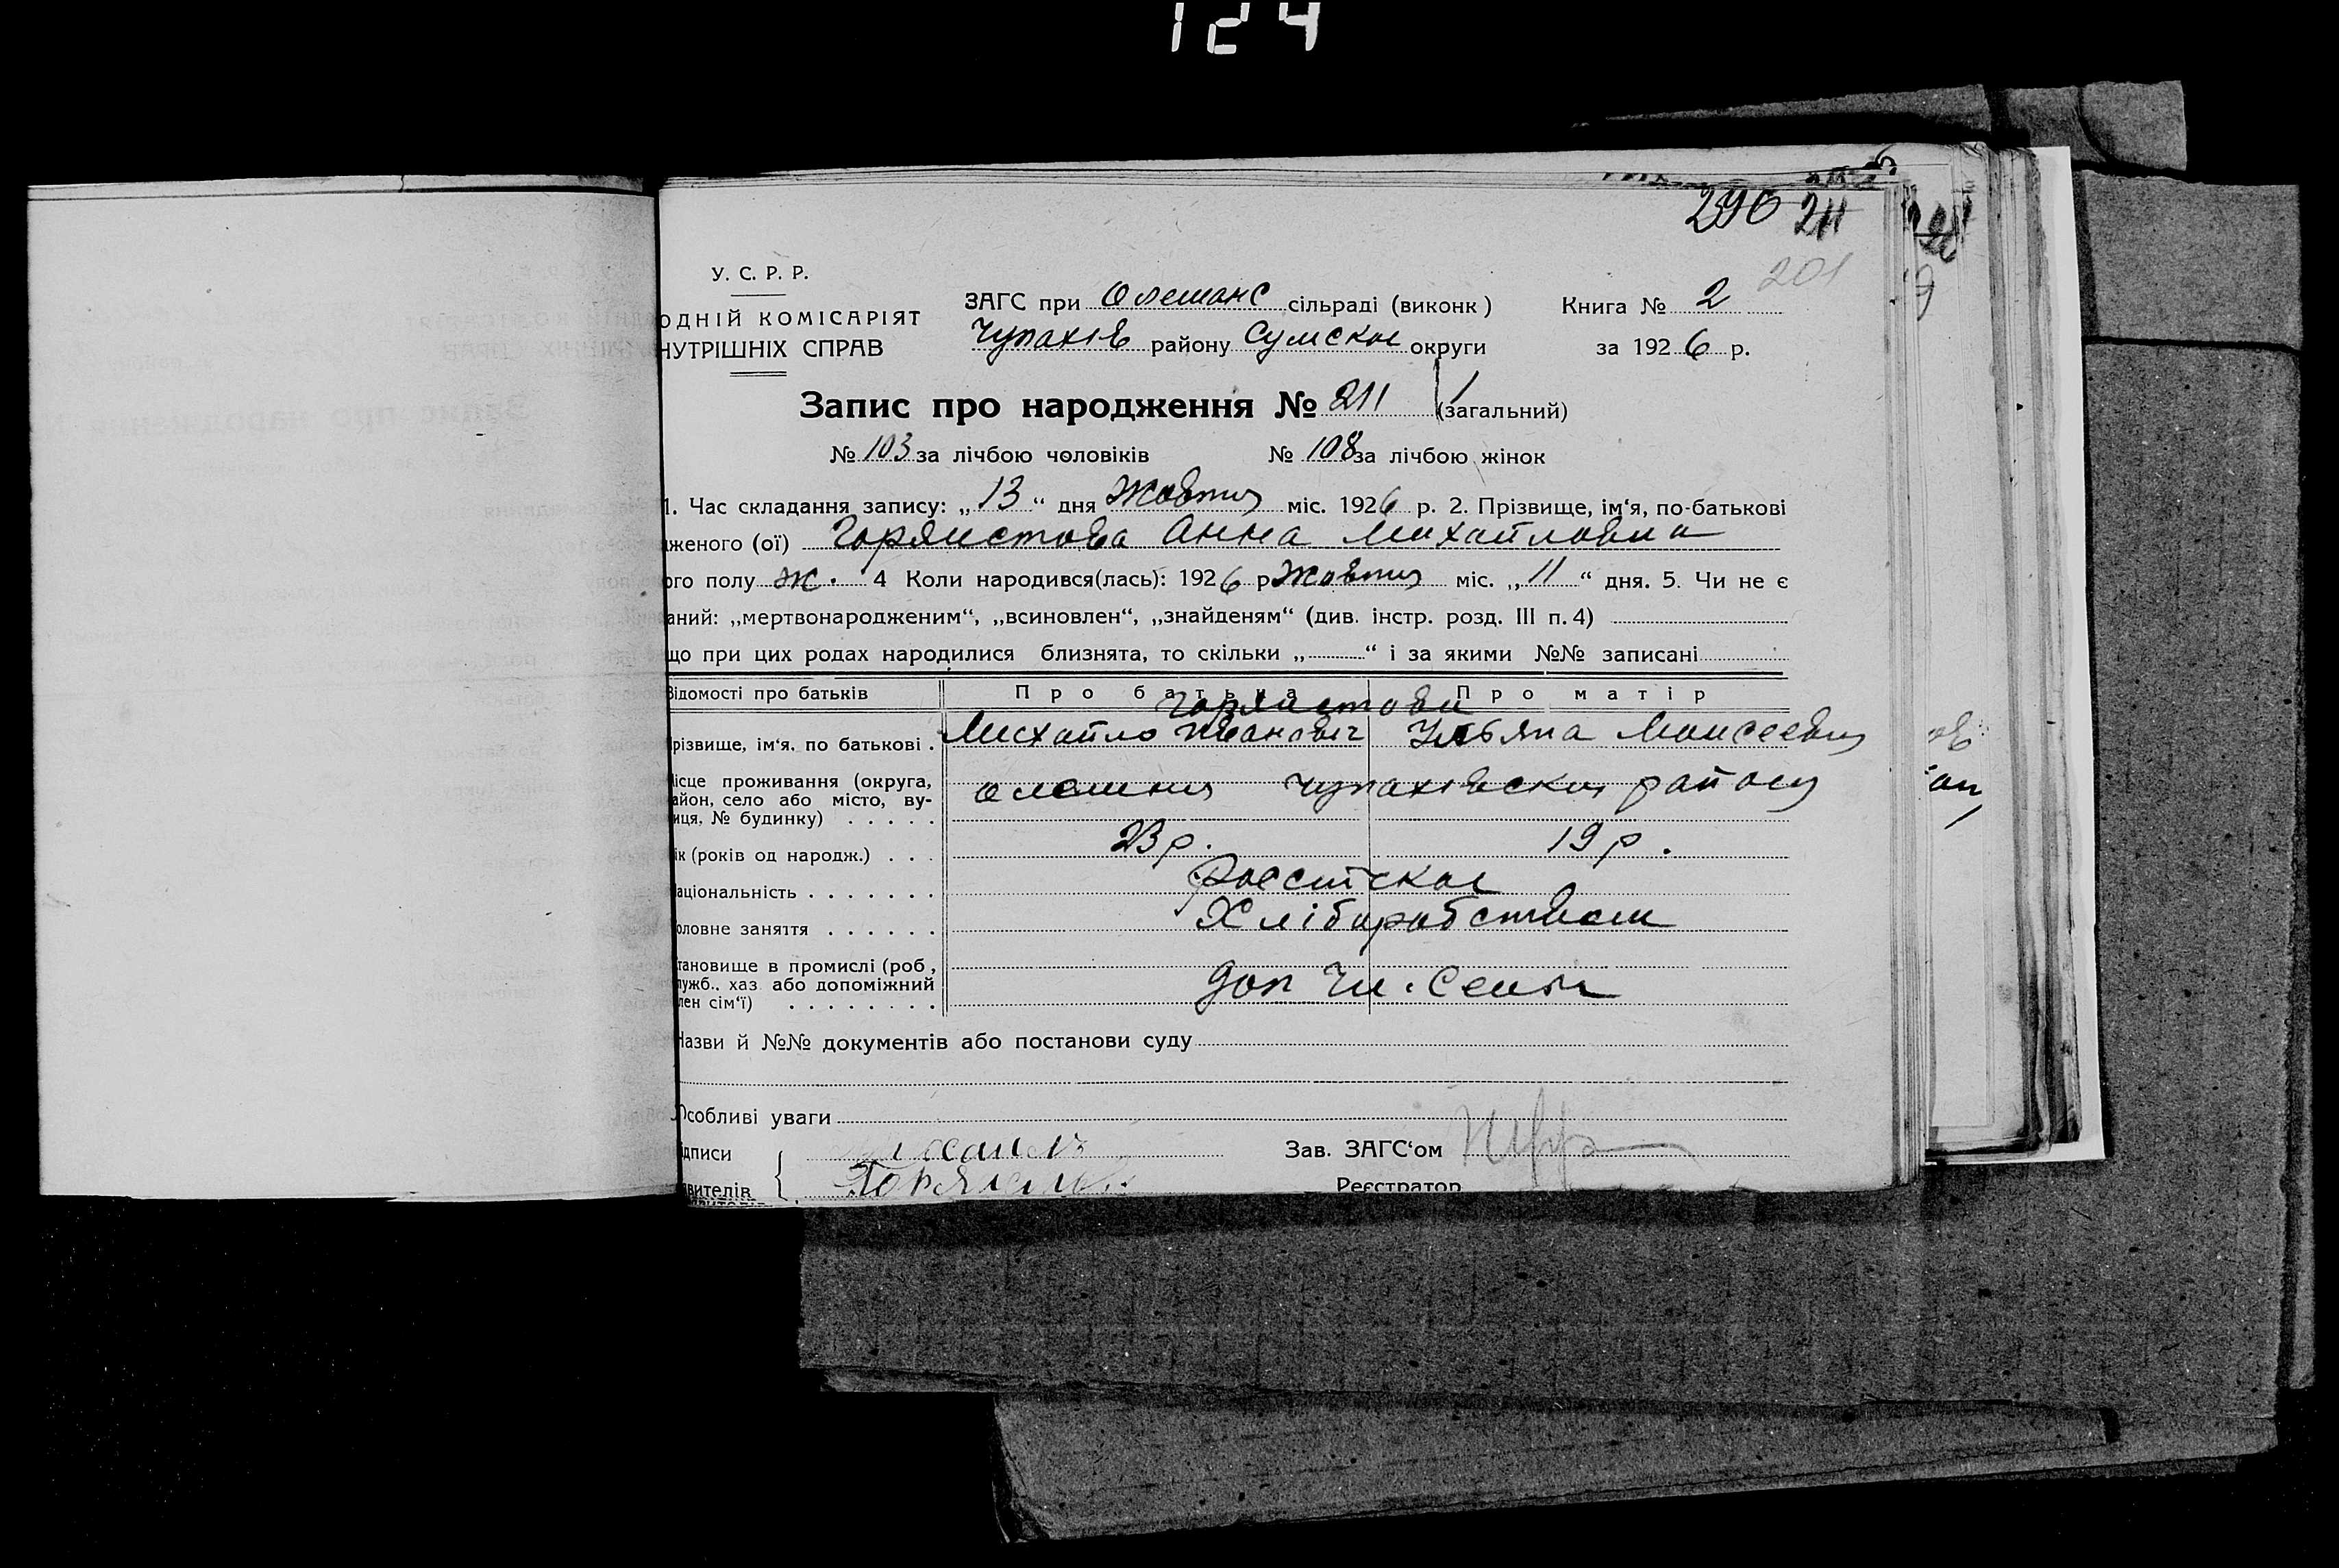 124
290 211
201
У. С. Р. Р.
ОДНІЙ КОМІСАРІЯТ
НУТРІШНІХ СПРАВ
ЗАГС при Олешанс сільраді (виконк)
Чупахів району Сумское округи
Книга № 2
за 1926 р.
Запис про народження № 211 (загальний)
№ 103 за лічбою чоловіків № 108 за лічбою жінок
1. Час складання запису: „13“ дня Жовтня міс. 1926 р. 2. Прізвище, ім‘я, по-батькові
дженого (ої) Горяистова Анна Михайловна
ого полу ж. 4 Коли народився(лась): 1926 р Жовтня міс. „11“ дня. 5. Чи не є
аний: „мертвонародженим“, „всиновлен“, „знайденям“ (див. інстр. розд. III п. 4)
що при цих родах народилися близнята, то скільки „ “ і за якими №№ записані
Відомості про батьків Про батька Про матір
Горяистови
різвище, ім‘я, по батькові . Михайло Иванович Ульяна Моисеевна
ісце проживання (округа,
айон, село або місто, ву-
иця, № будинку) . . . . .
Олешня Чупахівски району
ік (років од народж.) . . . 23 р. 19 р.
аціональність . . . . . . . Россійское
оловне заняття . . . . . . Хліборобством
тановище в промислі (роб,
лужб., хаз або допоміжний
лен сім‘ї) . . . . . . . .
доп Чл. Семьи
Назви й №№ документів або постанови суду
Особливі уваги
ідписи
явителів
Зав. ЗАГС‘ом
Реєстратор